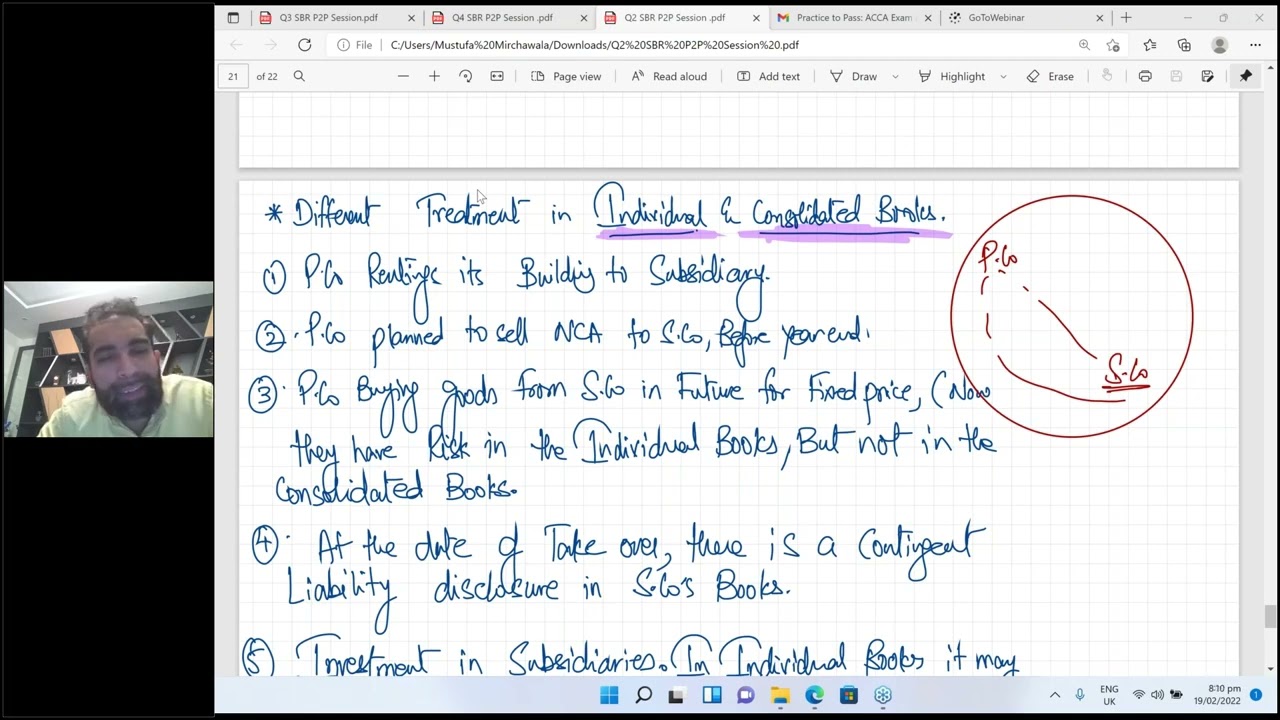 Q3 SBR P2P Session.pdf
Q4 SBR P2P Session .pdf
Q2 SBR P2P Session .pdf
Practice to Pass: ACCA Exam
GoToWebinar
File
C:/Users/Mustufa%20Mirchawala/Downloads/Q2%20SBR%20P2P%20Session%20.pdf
21 of 22
Page view
Read aloud
Add text
Draw
Highlight
Erase
* Different Treatment in Individual & Consolidated Books.
① P.Co Rentings its Building to Subsidiary.
② P.Co planned to sell NCA to S.Co, Before year end.
③ P.Co Buying goods from S.Co in Future for Fixed price, (Now
they have Risk in the Individual Books, But not in the
Consolidated Books.
④ At the date of Take over, there is a Contingent
Liability disclosure in S.Co's Books.
⑤ Investment in Subsidiaries. In Individual Books it may
P.Co
S.Co
ENG
UK
8:10 pm
19/02/2022
1